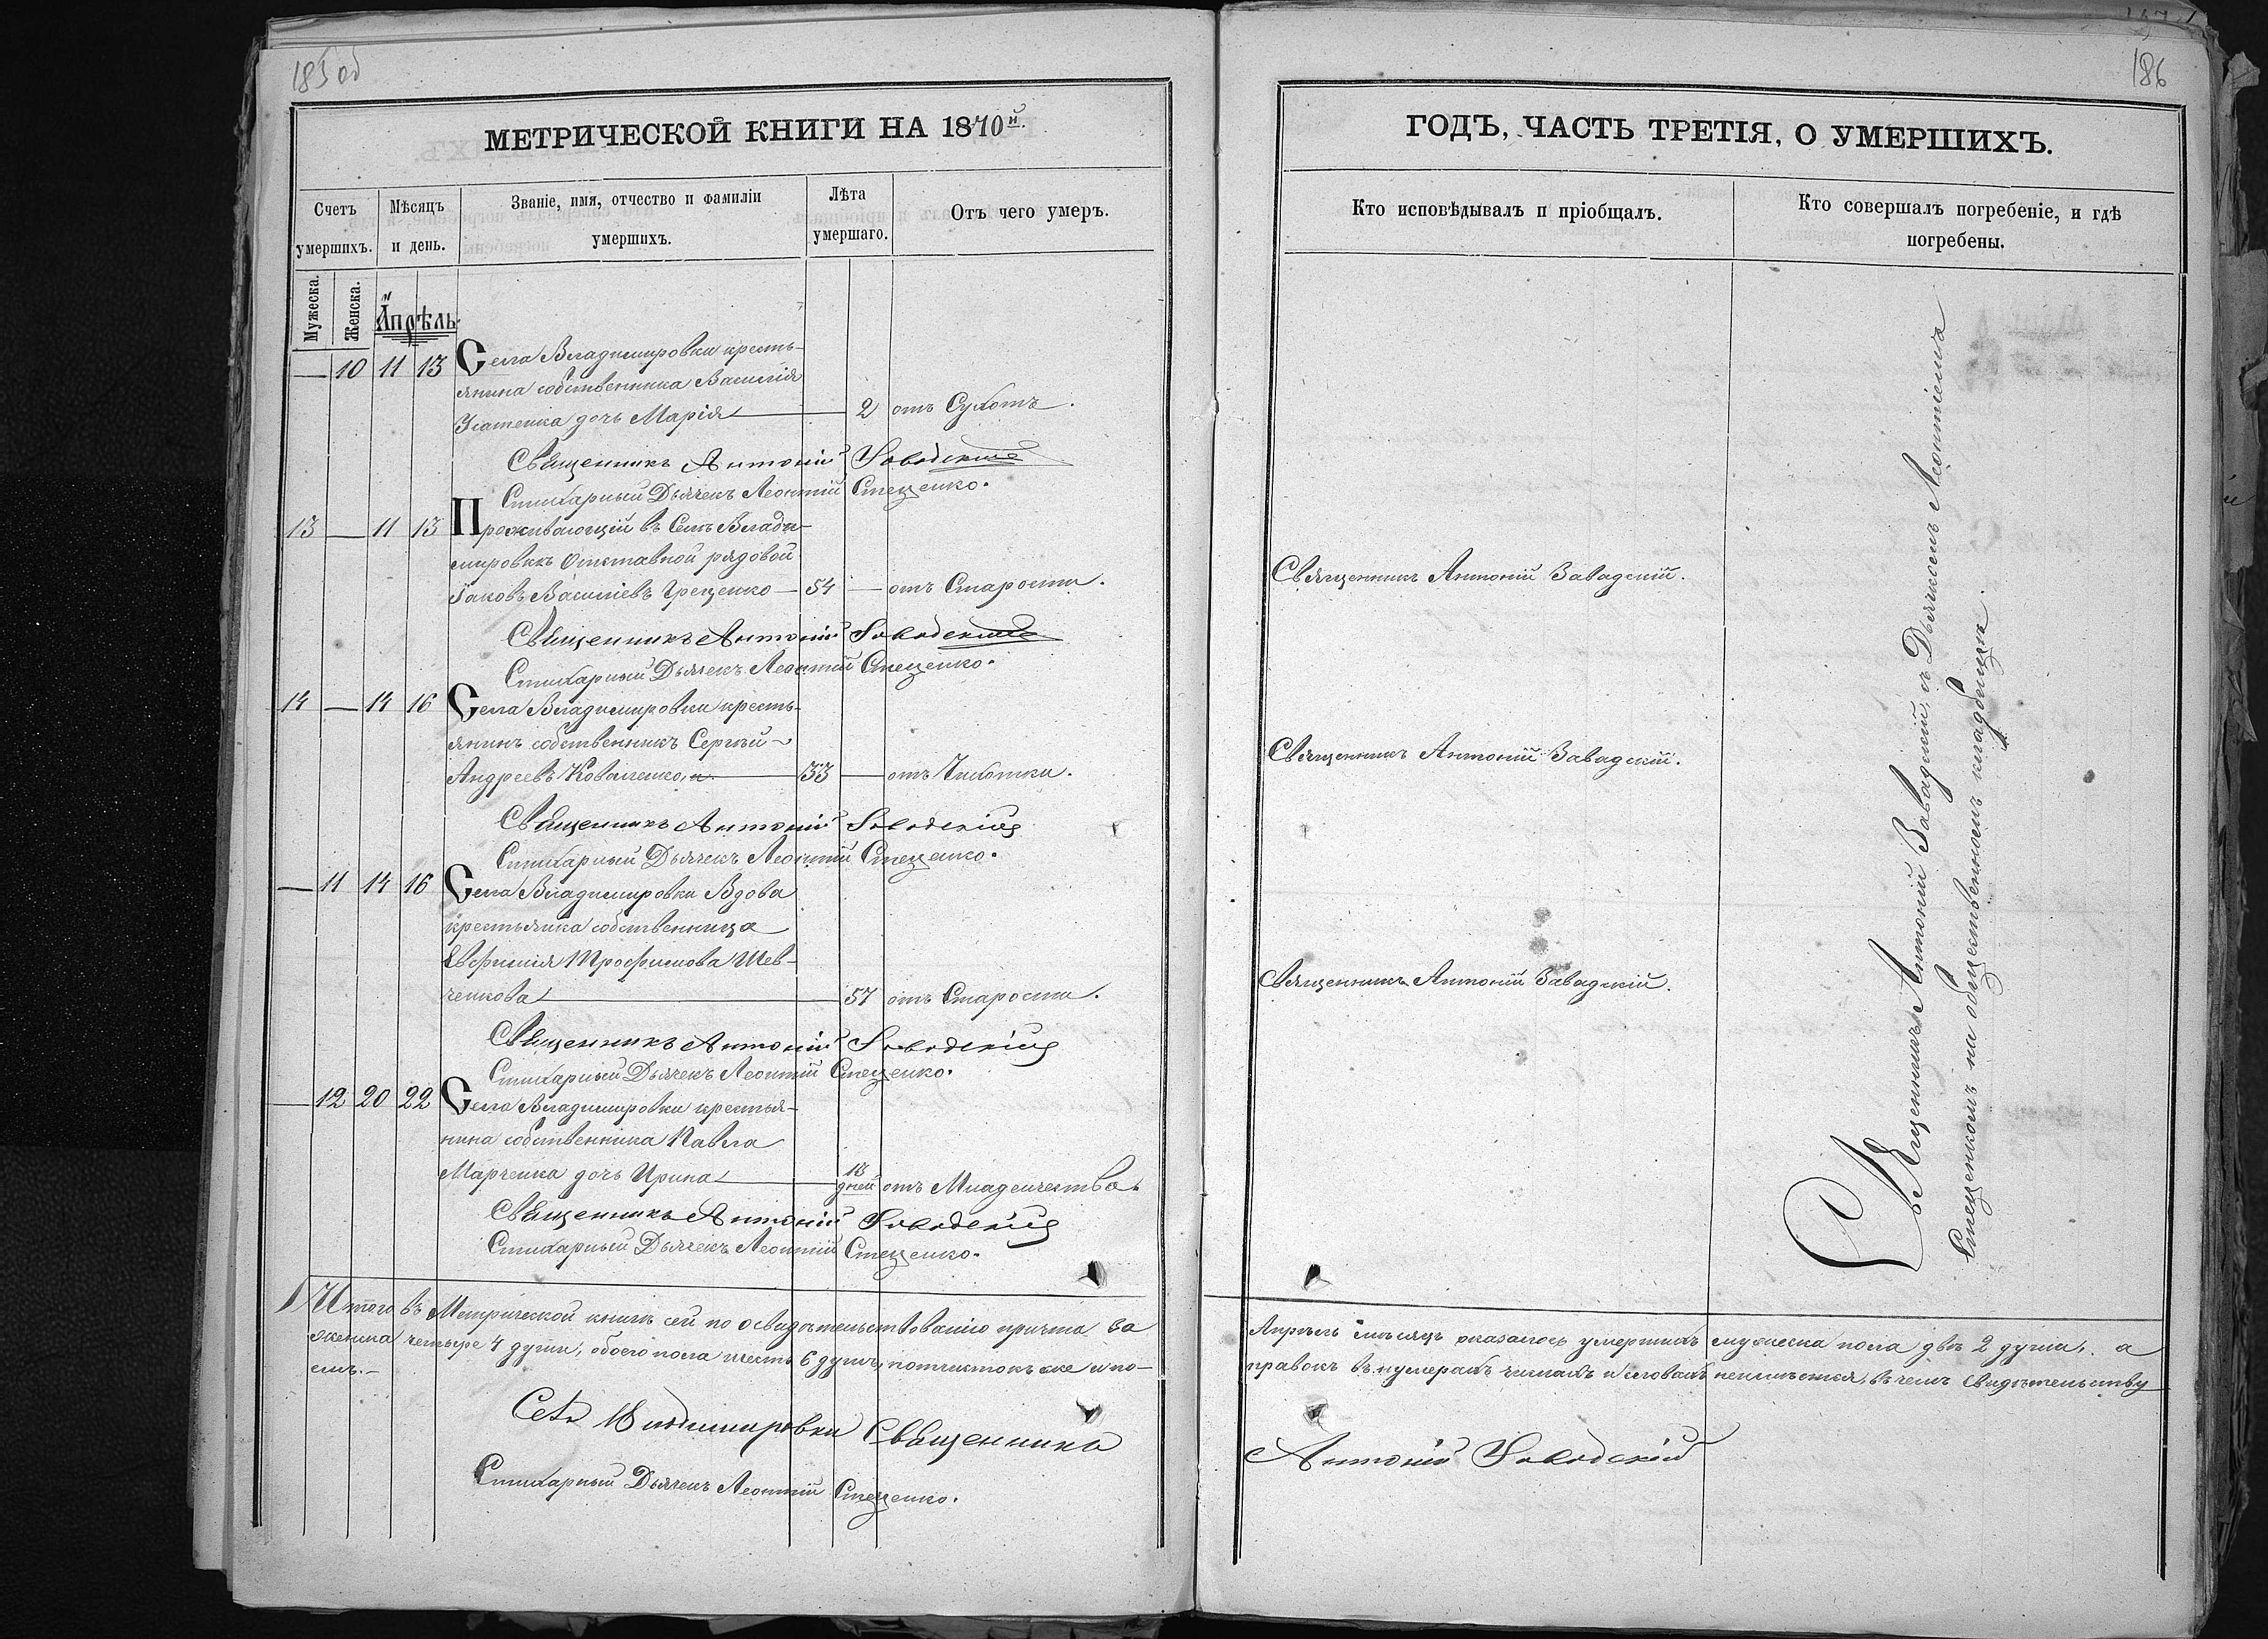 185 об
МЕТРИЧЕСКОЙ КНИГИ НА 1870й.
Счетъ умершихъ.
Мѣсяцъ и день.
Званіе, имя, отчество и фамиліи умершихъ.
Лѣта умершаго.
Отъ чего умеръ.
Мужеска.
Женска.
Апрѣль.
— 10 11 13 Села Владимировки кресть-
янина собственника Василія
дочь Марія — 2 отъ Сухотъ.
Священникъ Антоній Заводскій
Стихарный Дьячекъ Леонтій Стеценко.
13 — 11 13 Проживающій въ Селѣ Влади-
мировкѣ Отставной рядовой
Іаковъ Василіевъ Греценко — 54 — отъ Старости.
Священникъ Антоній Заводскій
Стихарный Дьячекъ Леонтій Стеценко.
14 — 14 16 Села Владимировки кресть-
янинъ собственникъ Сергѣй
Андреевъ Коваленко — 33 — отъ Чихотки.
Священникъ Антоній Заводскій
Стихарный Дьячекъ Леонтій Стеценко.
— 11 14 16 Села Владимировки Вдова
крестьянка собственница
Евфимія Трофимова Шев-
ченкова — 57 отъ Старости.
Священникъ Антоній Заводскій
Стихарный Дьячекъ Леонтій Стеценко.
— 12 20 22 Села Владимировки крестья-
нина собственника Павла
Марченка дочь Ирина — 13 дней отъ Младенчества.
Священникъ Антоній Заводскій
Стихарный Дьячекъ Леонтій Стеценко.
Итого въ Метрической книгѣ сей по освидѣтельствованію причта за
женска четыре 4 души, обоего пола шесть 6 душъ, почистокъ же и по-
емъ.-
Села Владимировки Священникъ
Стихарный Дьячекъ Леонтій Стеценко.
186
ГОДЪ, ЧАСТЬ ТРЕТІЯ, О УМЕРШИХЪ.
Кто исповѣдывалъ и пріобщалъ.
Кто совершалъ погребеніе, и гдѣ погребены.
Священникъ Антоній Завадскій.
Священникъ Антоній Завадскій.
Священникъ Антоній Завадскій.
Священникъ Антоній Завадскій, съ Дьячкомъ Леонтіемъ
Стеценкомъ на общественномъ кладбищѣ.
Апрѣль мѣсяцъ оказалось умершихъ мужеска пола двѣ 2 души, а
правокъ въ нумерахъ числахъ и словахъ неимѣется, въ чемъ свидѣтельству
Антоній Заводскій